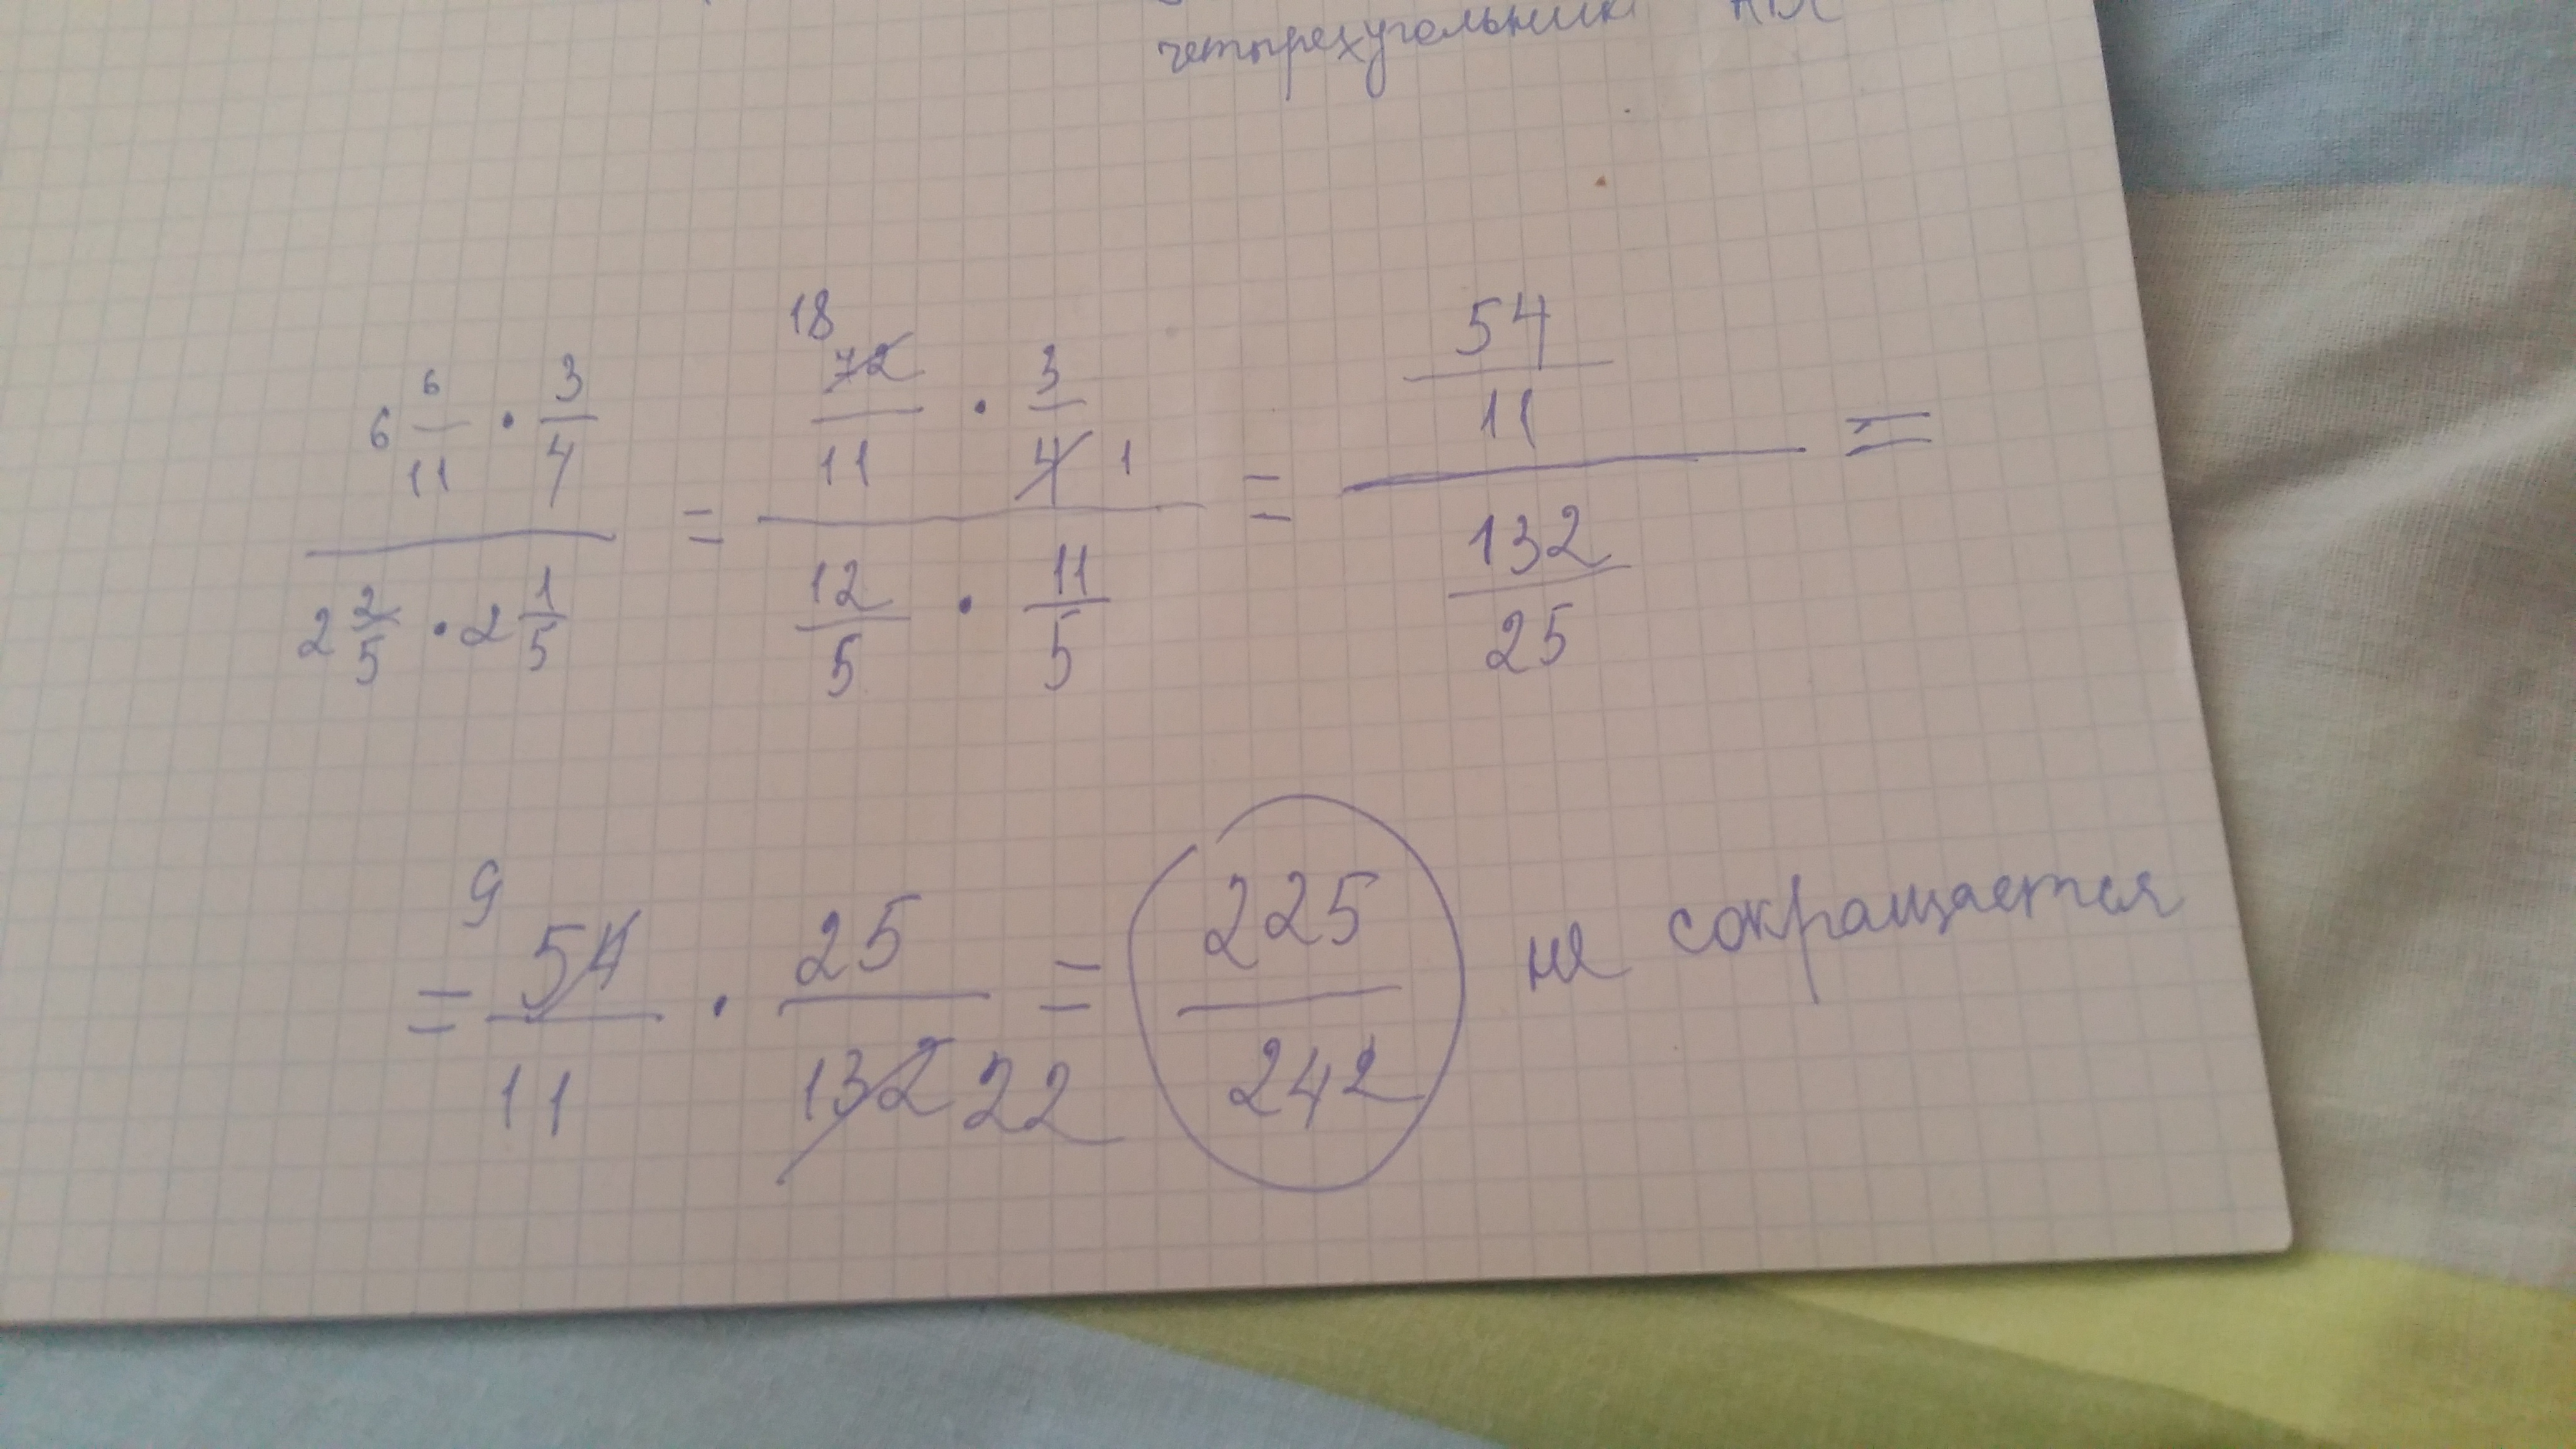 четырехугольник
6 6/11 · 3/4 / 2 2/5 · 2 1/5 = 18 72/11 · 3/4 1 / 12/5 · 11/5 = 54/11 / 132/25 =
= 9 54/11 · 25/132 22 = 225/242 не сокращается